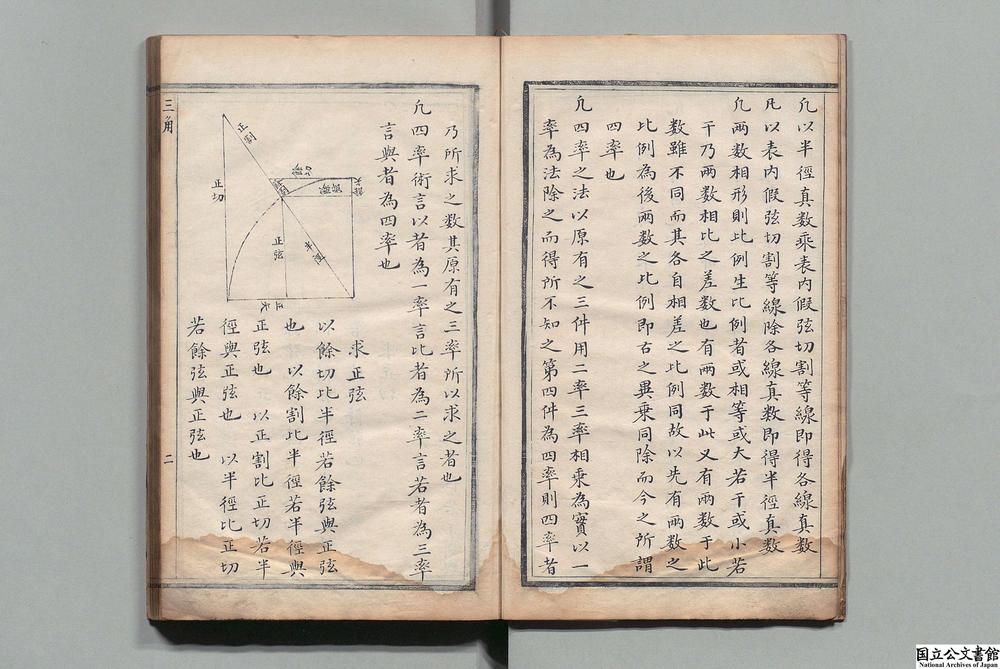 凡以半徑真數乘表內假弦切割等線即得各線真數
凡以表內假弦切割等線除各線真數即得半徑真數
凡兩數相形則比例生比例者或相等或大若干或小若
干乃兩數相比之差數也有兩數于此又有兩數于此
數雖不同而其各自相差之比例同故以先有兩數之
比例為後兩數之比例即古之異乗同除而今之所謂
四率也
凡四率之法以原有之三件用二率三率相乘為實以一
率為法除之而得所不知之第四件為四率則四率者
乃所求之數其原有之三率所以求之者也
凡四率術言以者為一率言比者為二率言若者為三率
言與者為四率也
正割
正切
餘切
餘割
餘弦
半徑
正弦
正矢
餘矢
求正弦
以餘切比半徑若餘弦與正弦
也 以餘割比半徑若半徑與
正弦也 以正割比正切若半
徑與正弦也 以半徑比正切
若餘弦與正弦也
三角
二
国立公文書館
National Archives of Japan